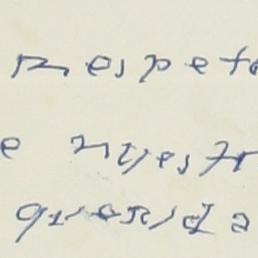 respeto
e nuestr
querida